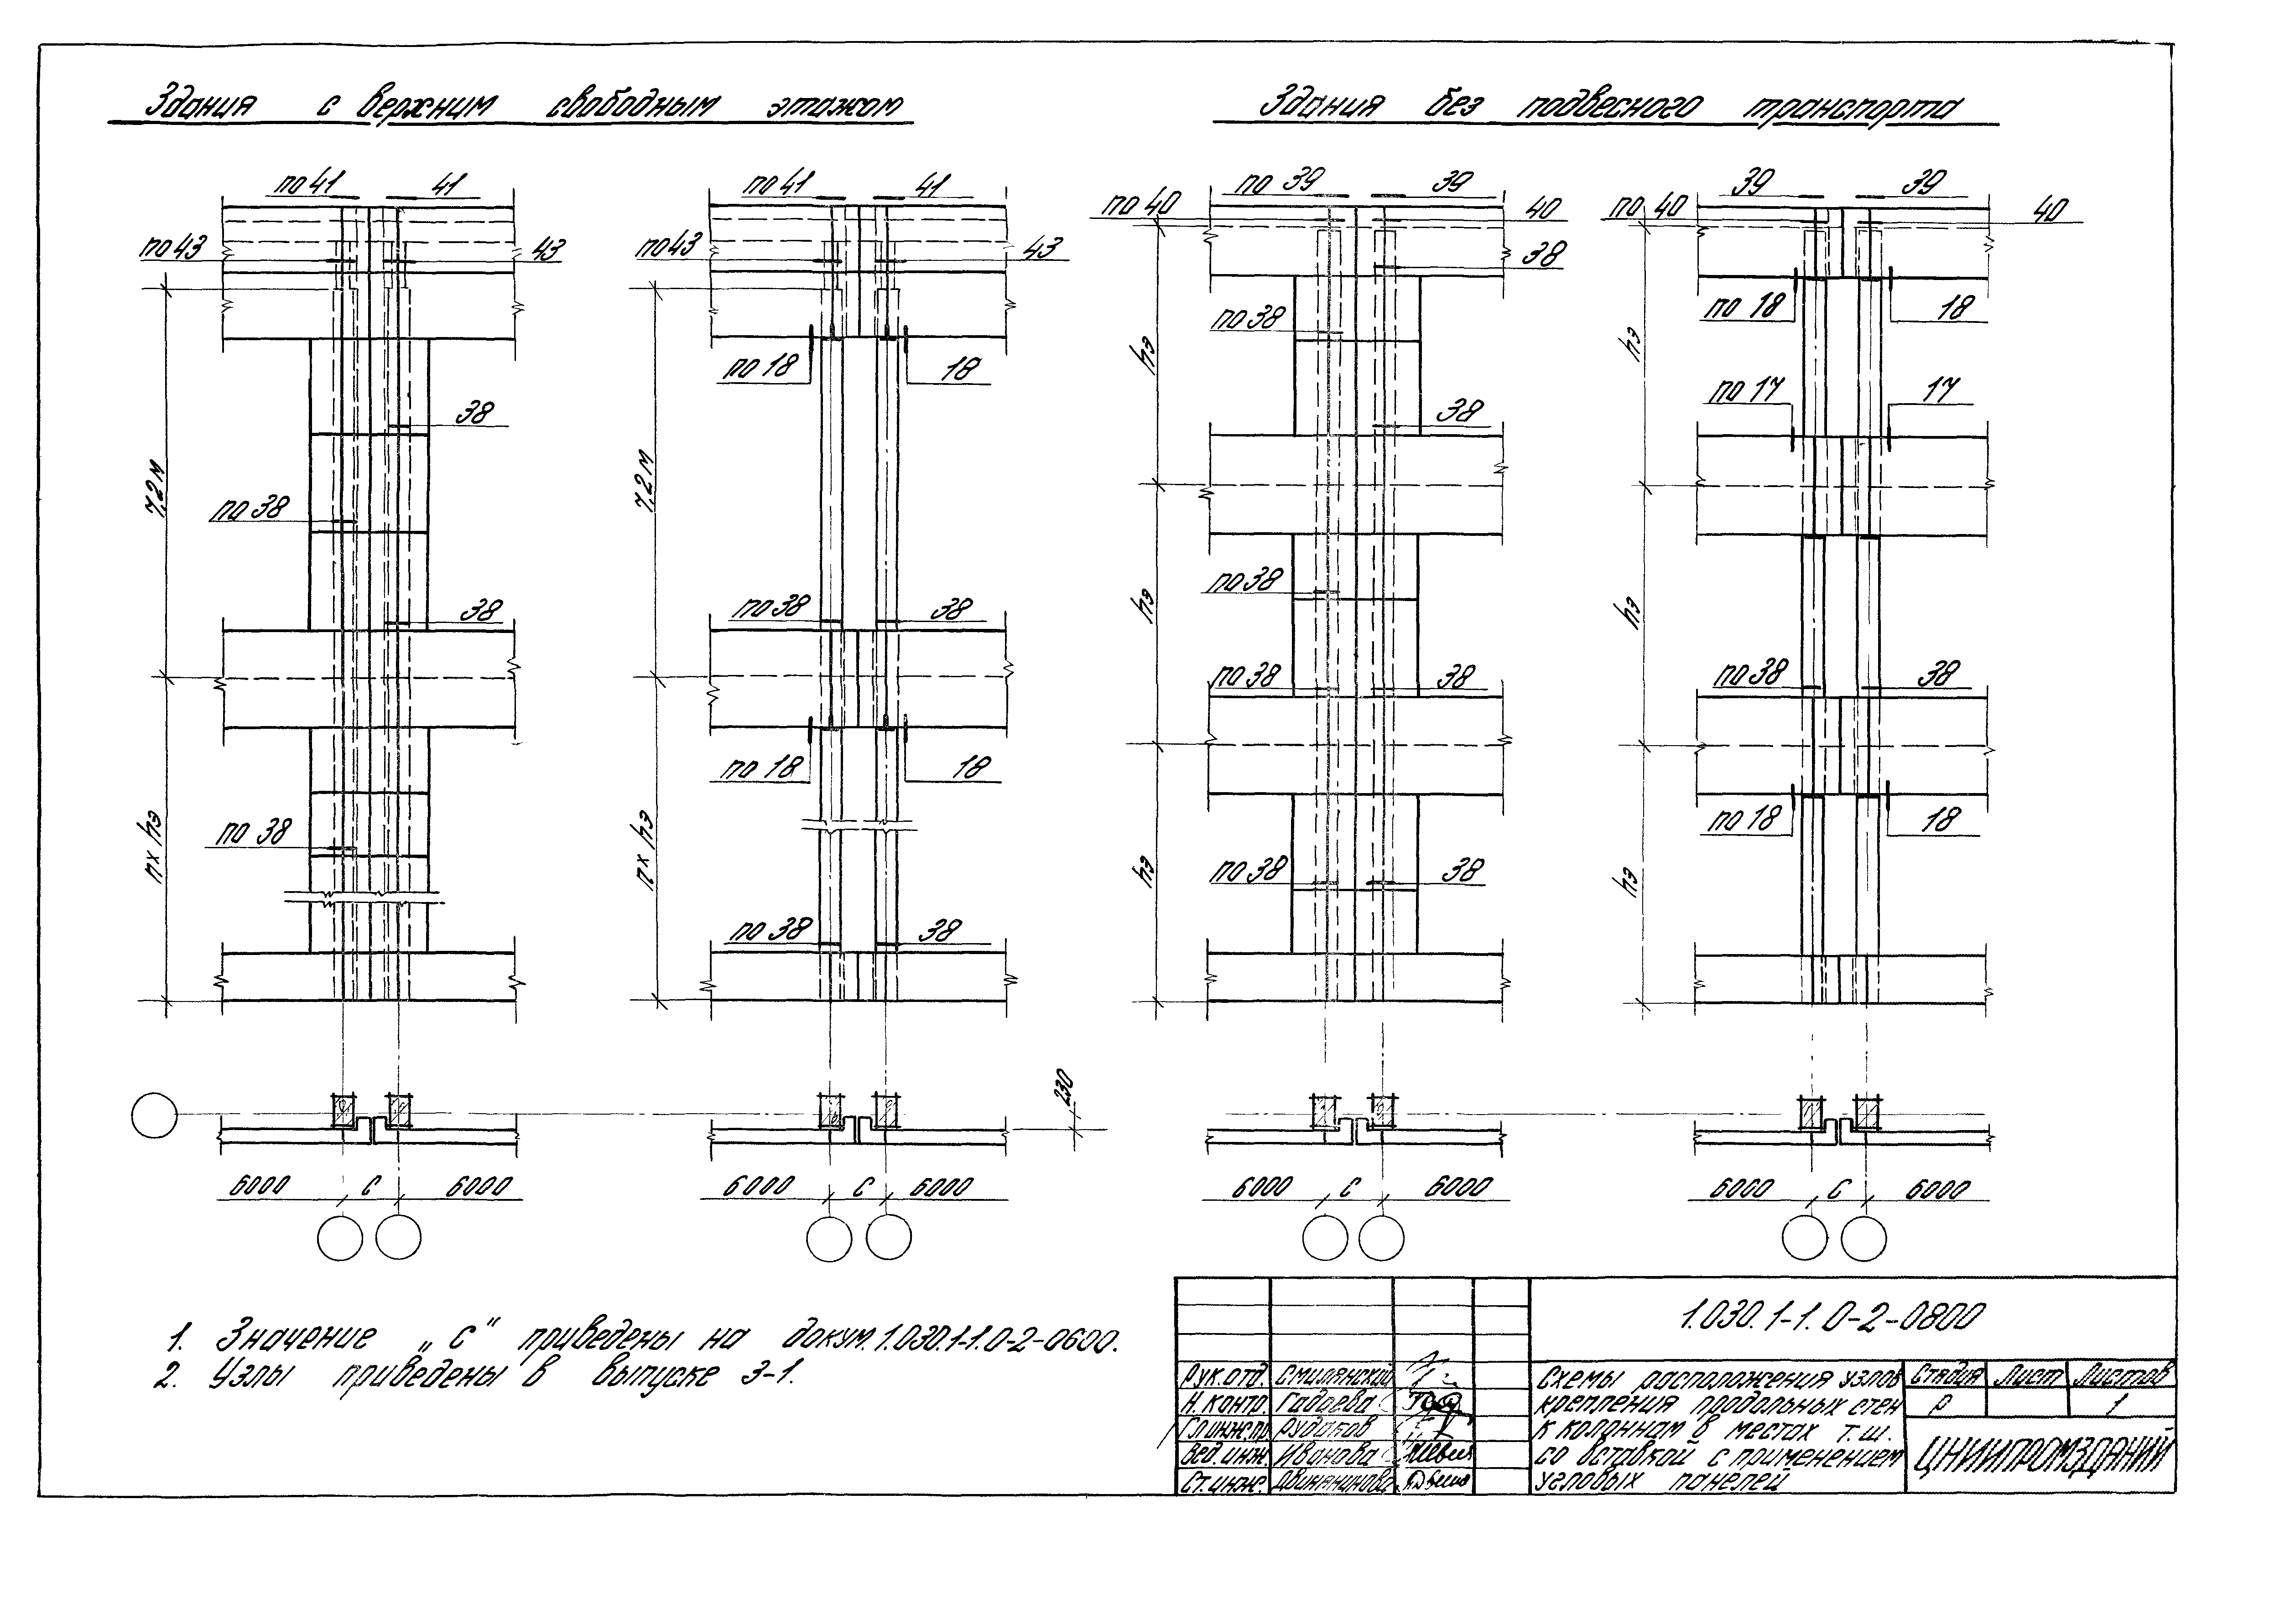 Здания с верхним свободным этажом
Здания без подвесного транспорта
по 41 41
по 43 43
38
по 38
38
по 38
7,2 м
n x hэ
6000 С 6000
по 41 41
по 43 43
по 18 18
по 38 38
по 18 18
по 38 38
7,2 м
n x hэ
230
6000 С 6000
по 39 39
по 40 40
38
по 38
38
по 38
по 38 38
по 38 38
hэ
hэ
hэ
6000 С 6000
39 39
по 40 40
по 18 18
по 17 17
по 38 38
по 18 18
hэ
hэ
hэ
6000 С 6000
1. Значение „С" приведены на докум. 1.030.1-1.0-2-0600.
2. Узлы приведены в выпуске 3-1.
1.030.1-1.0-2-0800
Рук.отд. Смилянский
Н.контр. Гадаева
Гл.инж.пр. Рудаков
Вед.инж. Иванова
Ст.инж.
Схемы расположения узлов
крепления продольных стен
к колоннам в местах т.ш.
со вставкой с применением
угловых панелей
Стадия Лист Листов
Р 1
ЦНИИПРОМЗДАНИЙ